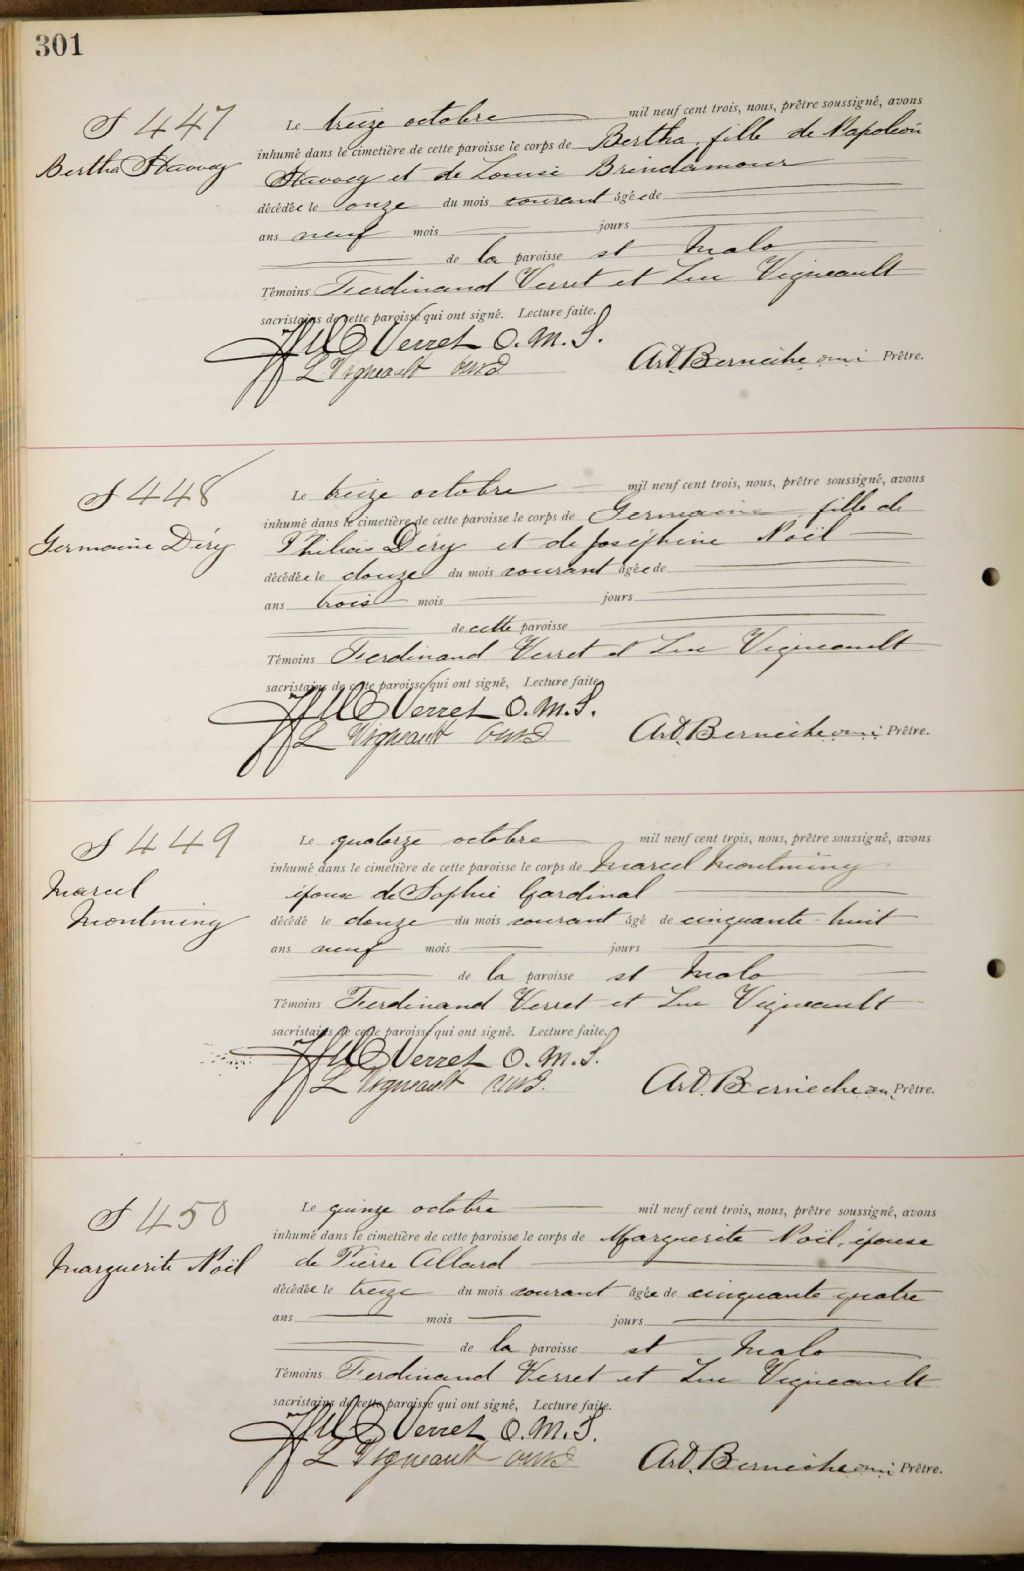 301
S 447
Bertha
Le treize octobre mil neuf cent trois, nous, prêtre soussigné, avons
inhumé dans le cimetière de cette paroisse le corps de Bertha, fille de Napoléon
et de Louise Brindamour
décédée le onze du mois courant âgée de
ans neuf mois jours
de la paroisse st Malo
Témoins Ferdinand Verret et Luc Vigneault
sacristains de cette paroisse qui ont signé. Lecture faite.
Verret O.M.S.
L Vigneault
Art. Bernèche omi Prêtre.
S 448
Germaine Déry
Le treize octobre mil neuf cent trois, nous, prêtre soussigné, avons
inhumé dans le cimetière de cette paroisse le corps de Germaine, fille de
Philéas Déry et de Joséphine Noël
décédée le douze du mois courant âgée de
ans trois mois jours
de cette paroisse
Témoins Ferdinand Verret et Luc Vigneault
sacristains de cette paroisse qui ont signé, Lecture faite.
Verret O.M.S.
L Vigneault
Art. Bernèche omi Prêtre.
S 449
Marcel
Montminy
Le quatorze octobre mil neuf cent trois, nous, prêtre soussigné, avons
inhumé dans le cimetière de cette paroisse le corps de Marcel Montminy
époux de Sophie Gardinal
décédé le douze du mois courant âgé de cinquante-huit
ans neuf mois jours
de la paroisse st Malo
Témoins Ferdinand Verret et Luc Vigneault
sacristains de cette paroisse qui ont signé. Lecture faite.
Verret O.M.S.
L Vigneault
Art. Bernèche omi Prêtre.
S 450
Marguerite Noël
Le quinze octobre mil neuf cent trois, nous, prêtre soussigné, avons
inhumé dans le cimetière de cette paroisse le corps de Marguerite Noël, épouse
de Pierre Allard
décédée le treize du mois courant âgée de cinquante quatre
ans mois jours
de la paroisse st Malo
Témoins Ferdinand Verret et Luc Vigneault
sacristains de cette paroisse qui ont signé, Lecture faite.
Verret O.M.S.
L Vigneault
Art. Bernèche omi Prêtre.